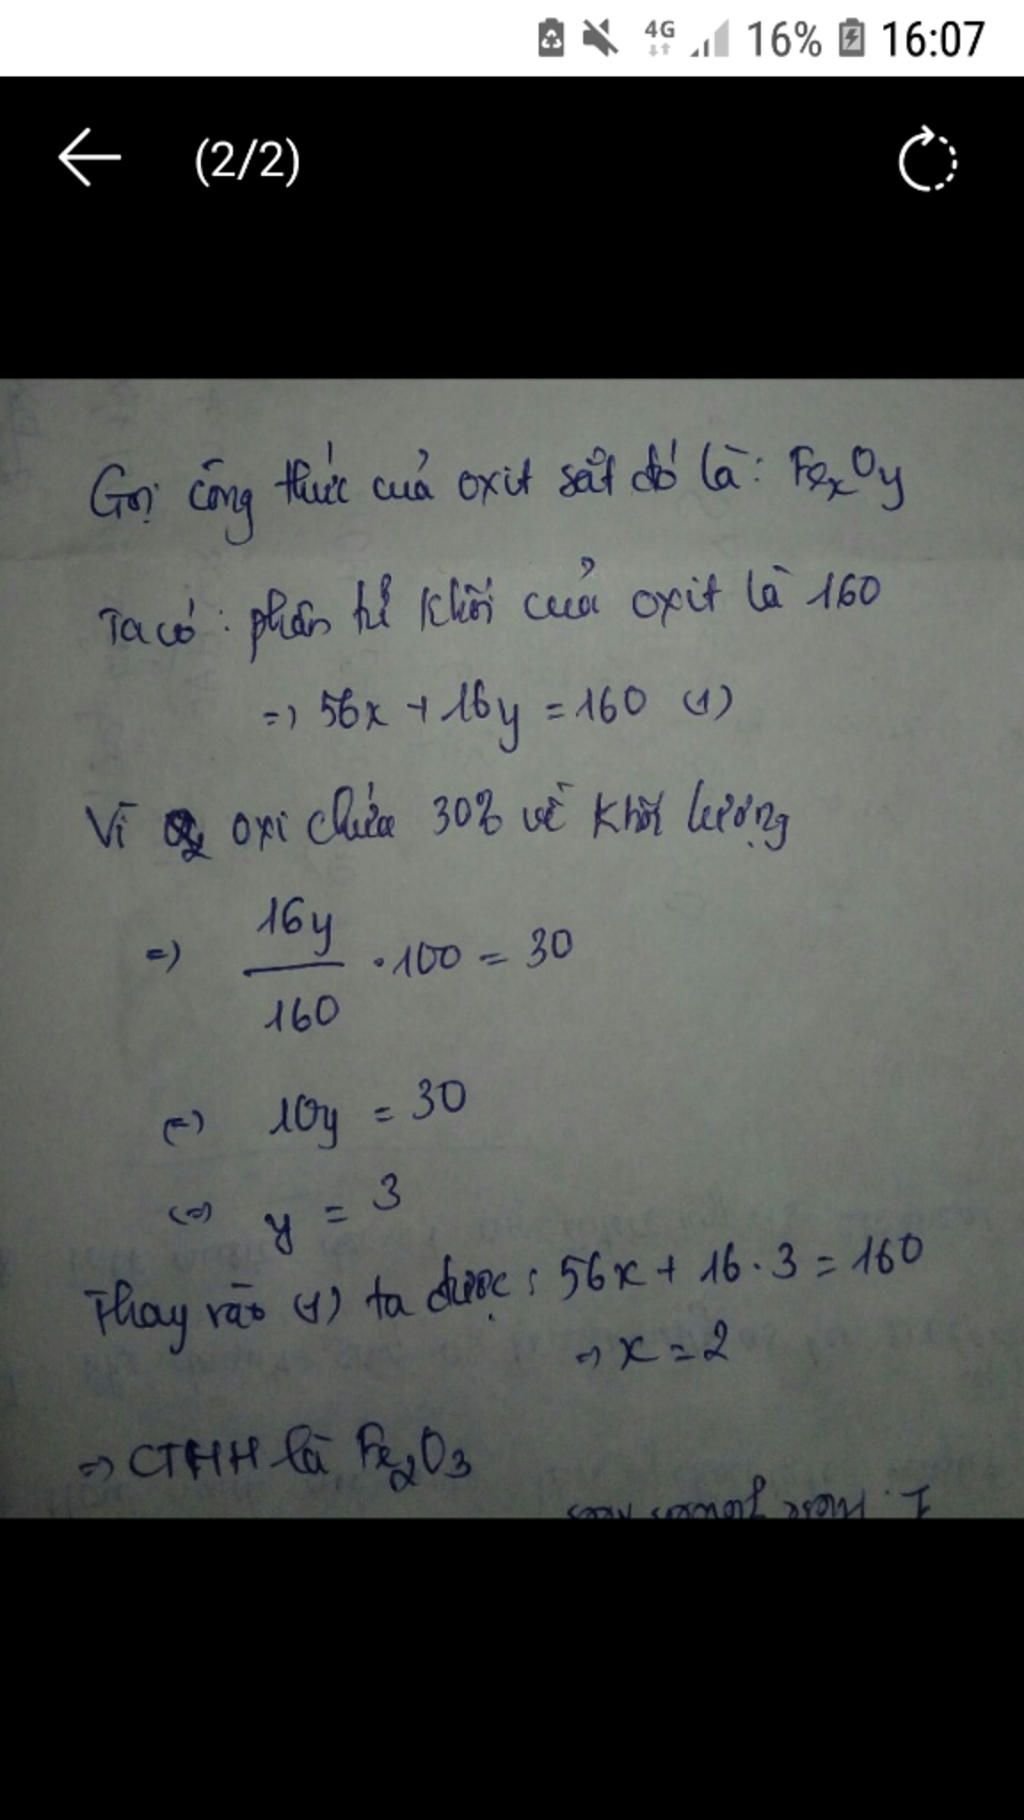 4G 16% 16:07
(2/2)
Gọi công thức của oxit sắt đó là: FexOy
Ta có: phân tử khối của oxit là 160
=> 56x + 16y = 160 (1)
Vì oxi chứa 30% về khối lượng
=> 16y/160 . 100 = 30
<=> 10y = 30
<=> y = 3
Thay vào (1) ta được: 56x + 16.3 = 160
=> x = 2
=> CTHH là Fe2O3